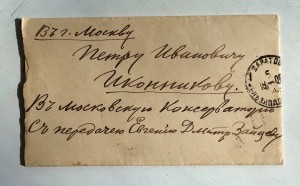 Въ г. Москву
Петру Ивановичу
Иконникову.
Въ Московскую Консерваторію
Съ передачею Евгенію Дмитр. Зайцеву
САРАТОВ